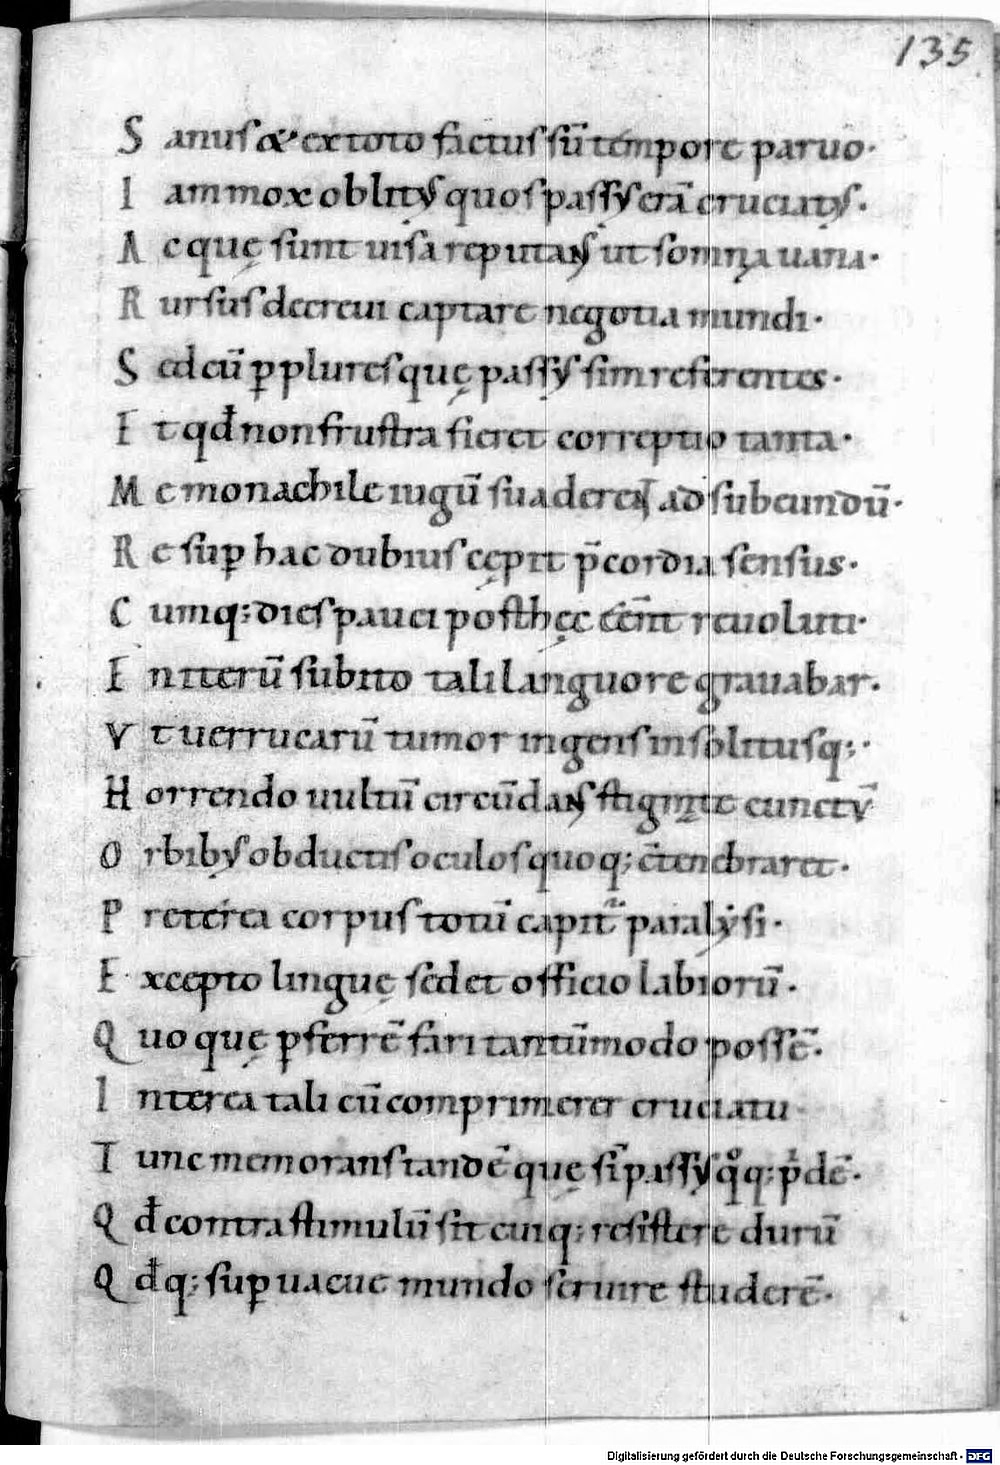 135
Sanus & ex toto factus sū tempore paruo·
Iam mox oblitus quos passus erā cruciatus·
Ac quę sunt uisa reputans ut somnia uana·
Rursus decreui captare negotia mundi·
Sed cū p̱plures quę passus sim referentes·
Et qđ non frustra fieret correptio tanta·
Me monachile iugū suaderent ad subeundū·
Re sup̱ hac dubius cępit p̄cordia sensus·
Cumq; dies pauci post hęc eēnt reuoluti·
En iterū subito tali languore grauabar·
Vt uerrucarū tumor ingens insolitusq;·
Horrendo uultū circūdans stigmate cunctū
Orbibus obductis oculos quoq; c̄tenebraret·
Preterea corpus totū capit paralysi·
Excepto linguę sed et officio labiorū·
Quo quę p̱ferrē fari tantūmodo possē·
Interea tali cū comprimerer cruciatu·
Tunc memorans tandē quę sī passus qͦq; pͥdē·
Qđ contra stimulū sit cuiq; resistere durū
Qđq; sup̱uacue mundo seruire studerē·
Digitalisierung gefördert durch die Deutsche Forschungsgemeinschaft - DFG